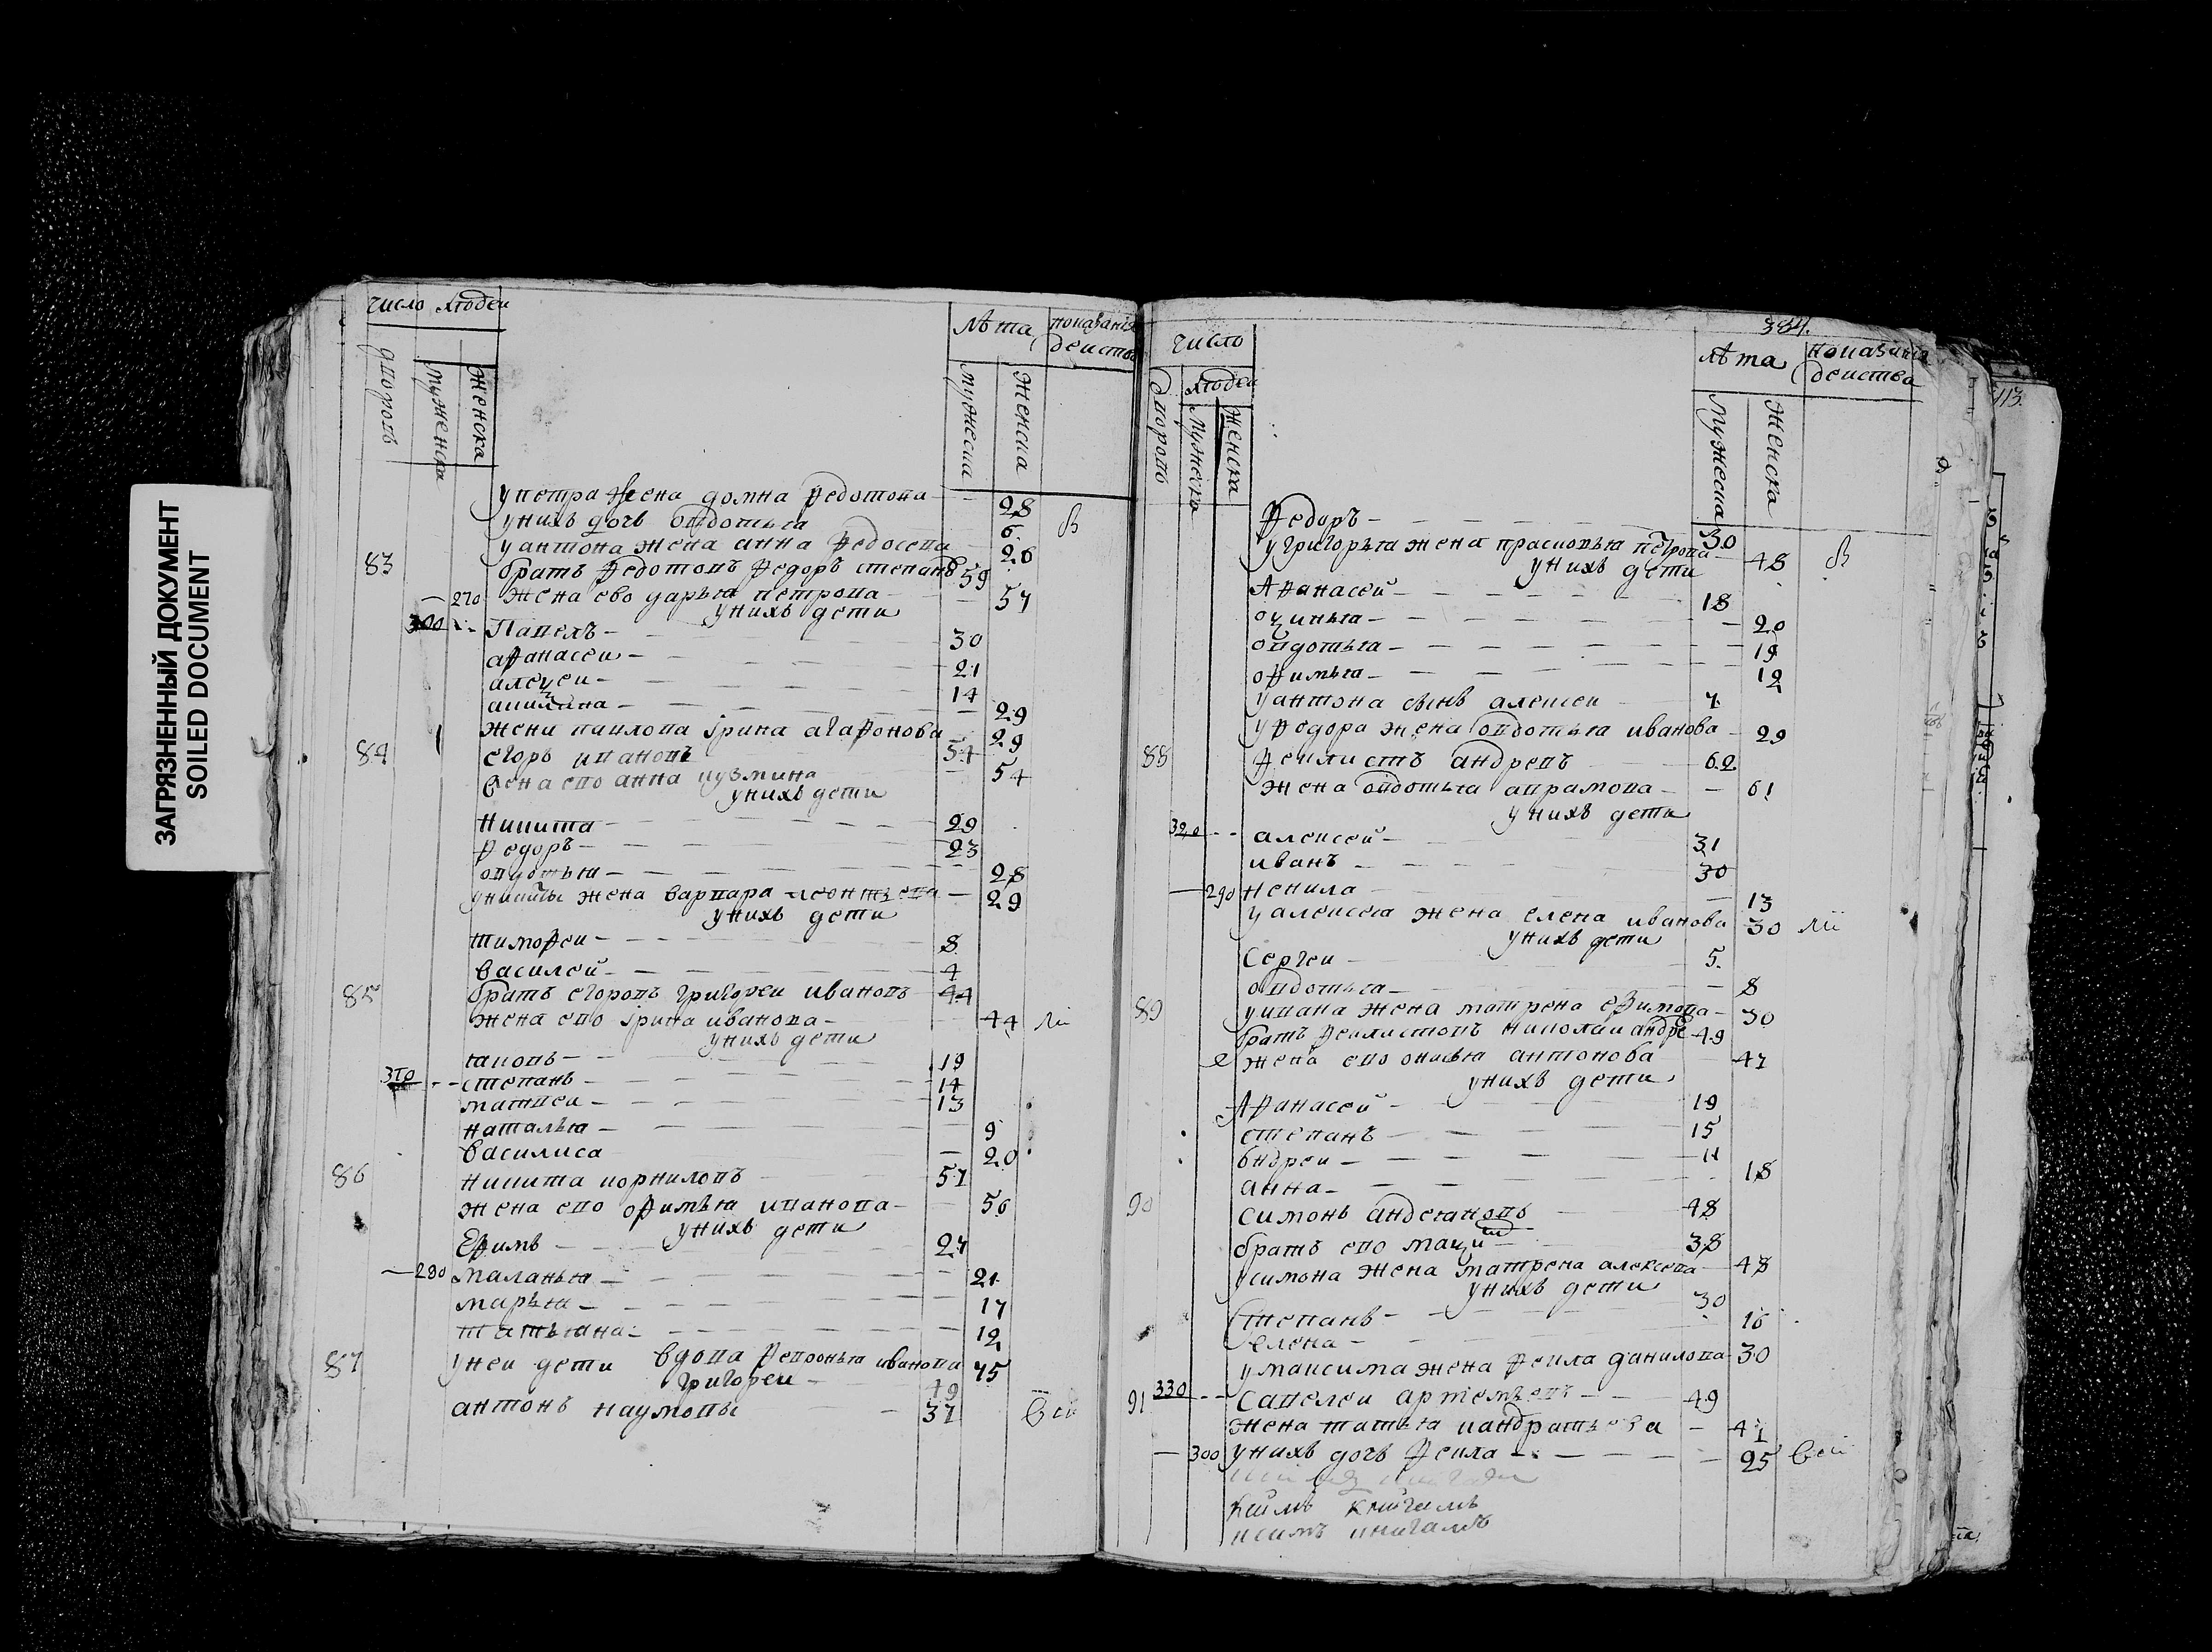 ЗАГРЯЗНЕННЫЙ ДОКУМЕНТ
SOILED DOCUMENT
число людеи
дворовъ
мужеска
женска
лѣта
мужеска
женска
показанія
деиства
у петра жена домна федотова 28
у нихъ дочь овдотья 6 в
у антона жена анна федосева 26
83 братъ федотовъ федоръ степанов 59
270 жена ево дарья петрова 57
у нихъ дети
300 Павелъ 30
афанасеи 21
алеѯеи 14
акилина 29
жена павлова ірина агафонова 29
84 егоръ ивановъ 54
жена ево анна кузмина 54
у нихъ дети
никита 29
федоръ 23
овдотья 28
у никиты жена варвара леонтьева 29
у нихъ дети
тимофеи 8
василей 4
85 братъ егоровъ григореи ивановъ 44
жена ево ірина иванова 44
у нихъ дети
яковъ 19
310 степанъ 14
матвеи 13
наталья 9
василиса 20
86 никита корниловъ 57
жена ево офимья иванова 56
у нихъ дети
Ефимъ 27
280 маланья 21
марья 17
татьяна 12
87 вдова февронья иванова 75
у неи дети григореи 49
антонъ наумовы 37
334.
113.
число
людеи
дворовъ
мужеска
женска
лѣта
мужеска
женска
показания
деиства
Федоръ 30
у григорья жена прасковья петрова 48 в
у нихъ дети
Афанасей 18
оѯинья 20
овдотья 19
офимья 12
у антона сынъ алексеи 7
у федора жена овдотья иванова 29
88 феклистъ андревъ 62
жена овдотья аврамова 61
у нихъ дети
320 алексей 31
иванъ 30
290 ненила 13
у алексея жена елена иванова 30
у нихъ дети
Сергеи 5
овдотья 8
у ивана жена матрена ефимова 30
89 братъ феклистовъ николаи андре 49
жена ево онисья антонова 47
у нихъ дети
Афанасей 19
степанъ 15
андреи 11
анна 18
90 симонъ андреяновъ 48
братъ ево маѯим 38
у симона жена матрена алексева 48
у нихъ дети
Степанъ 30
елена 16
у максима жена фекла данилова 30
91 330 Савелеи артемьевъ 49
жена татьяна кандратьева 47
300 у нихъ дочь фекла 25